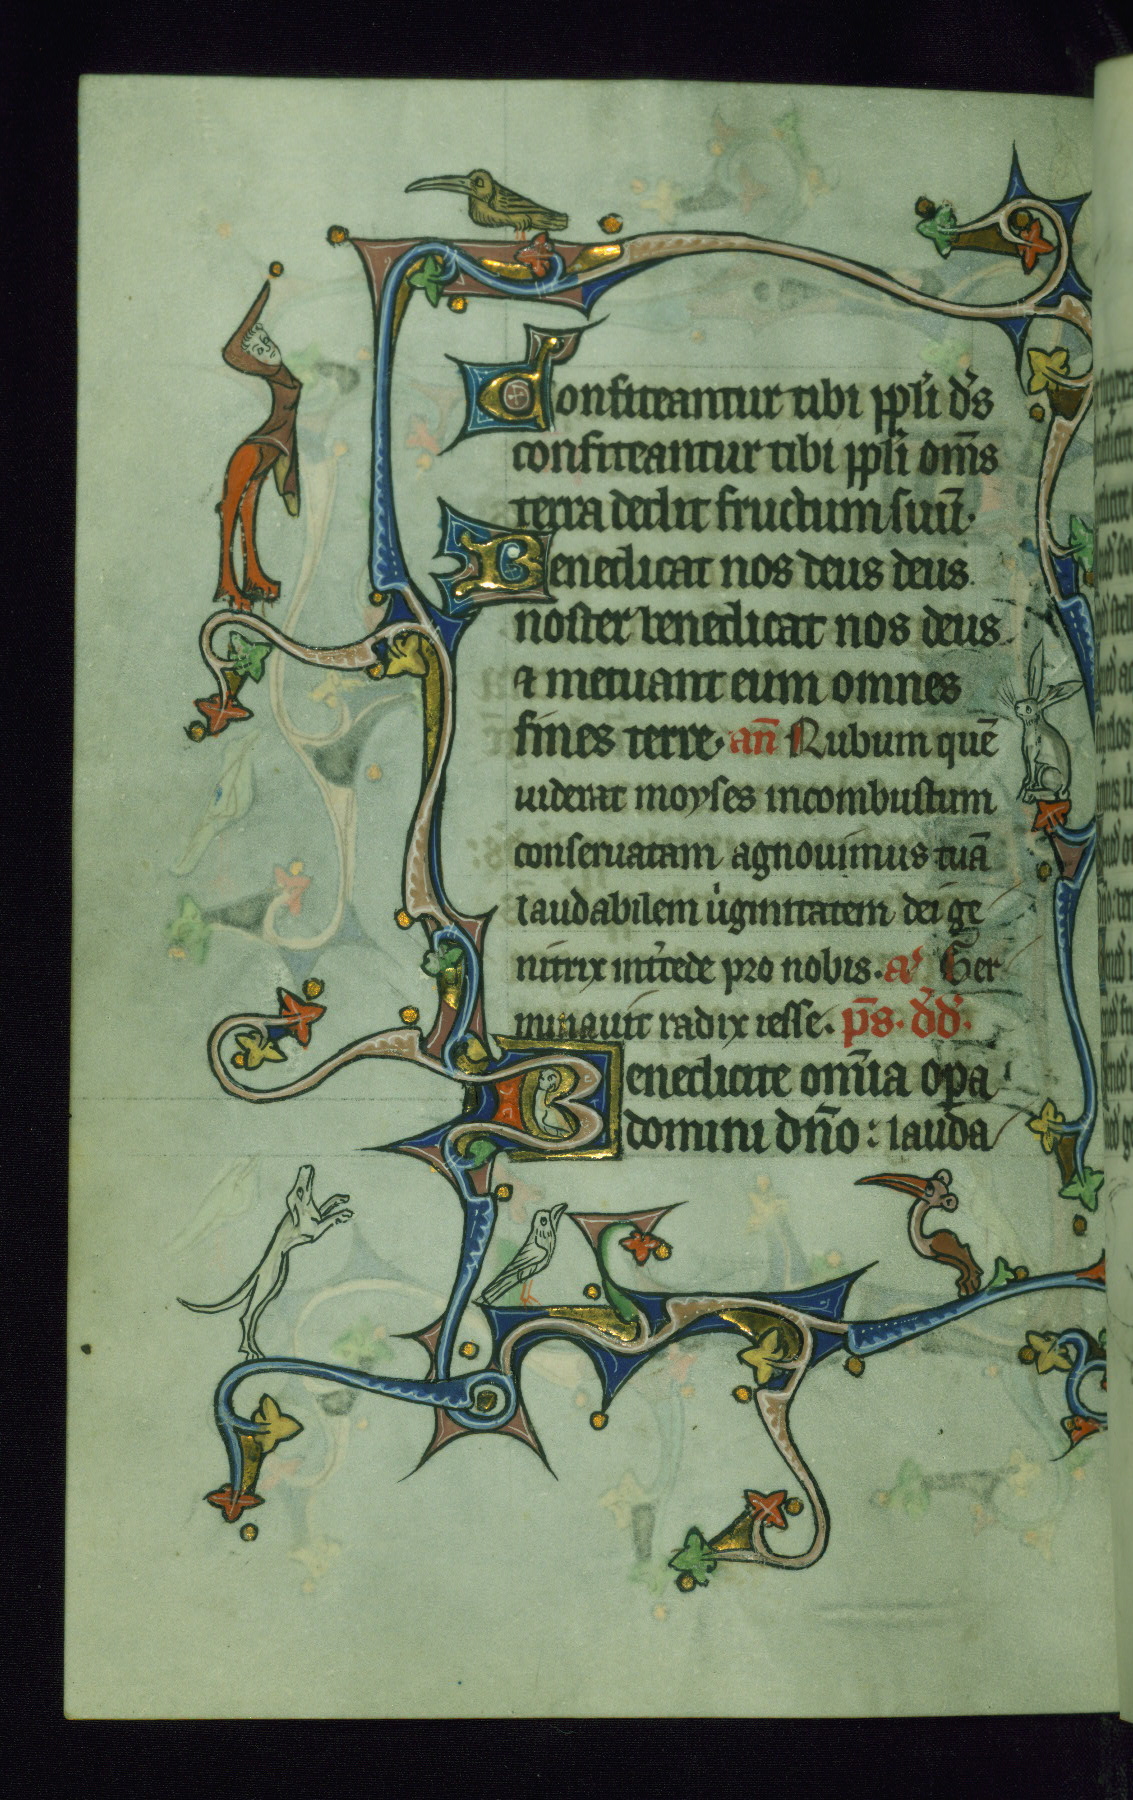 Confiteantur tibi pp̅li d̅s
confiteantur tibi pp̅li om̅s
terra dedit fructum suu̅.
Benedicat nos deus deus
noster benedicat nos deus
⁊ metuant eum omnes
fines terre. an̅ Rubum que̅
uiderat moyses incombustum
conseruatam agnouimus tua̅
laudabilem uͥginitatem dei ge
nitrix int̓cede pro nobis. a͛ Ger
minauit radix iesse. p̅s. d̅d̅.
Benedicite om̅ia op̅a
domini dn̅o : lauda